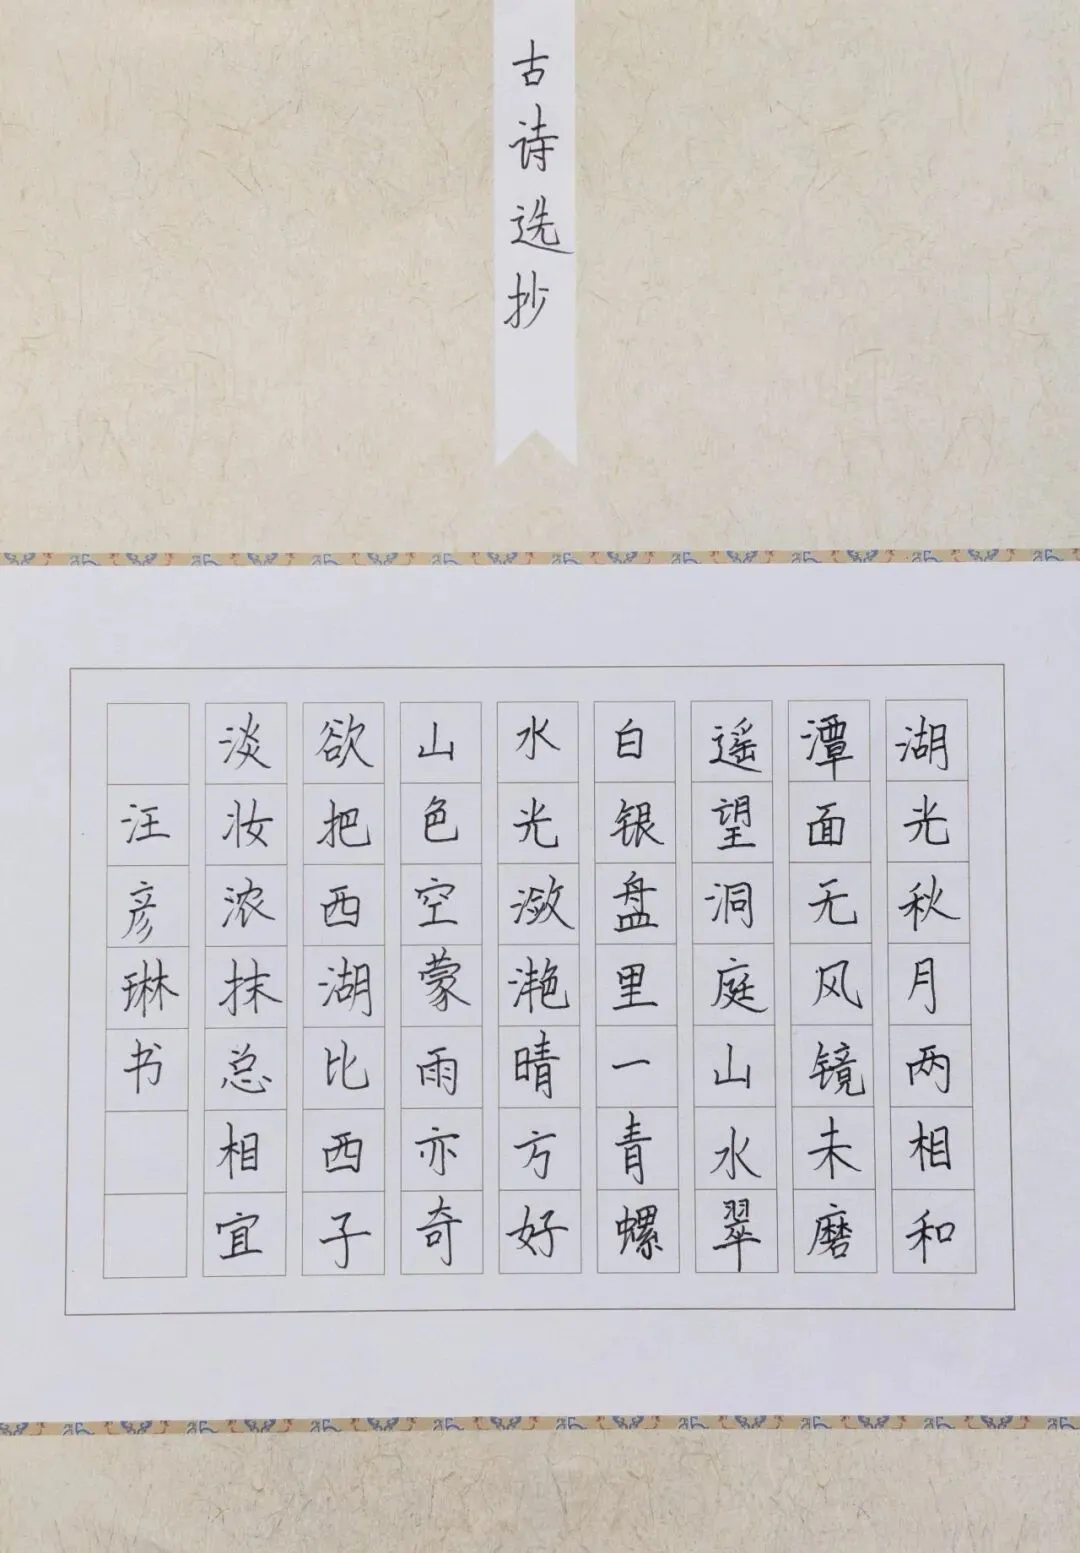 古诗选抄
湖光秋月两相和
潭面无风镜未磨
遥望洞庭山水翠
白银盘里一青螺
水光潋滟晴方好
山色空蒙雨亦奇
欲把西湖比西子
淡妆浓抹总相宜
汪彦琳书